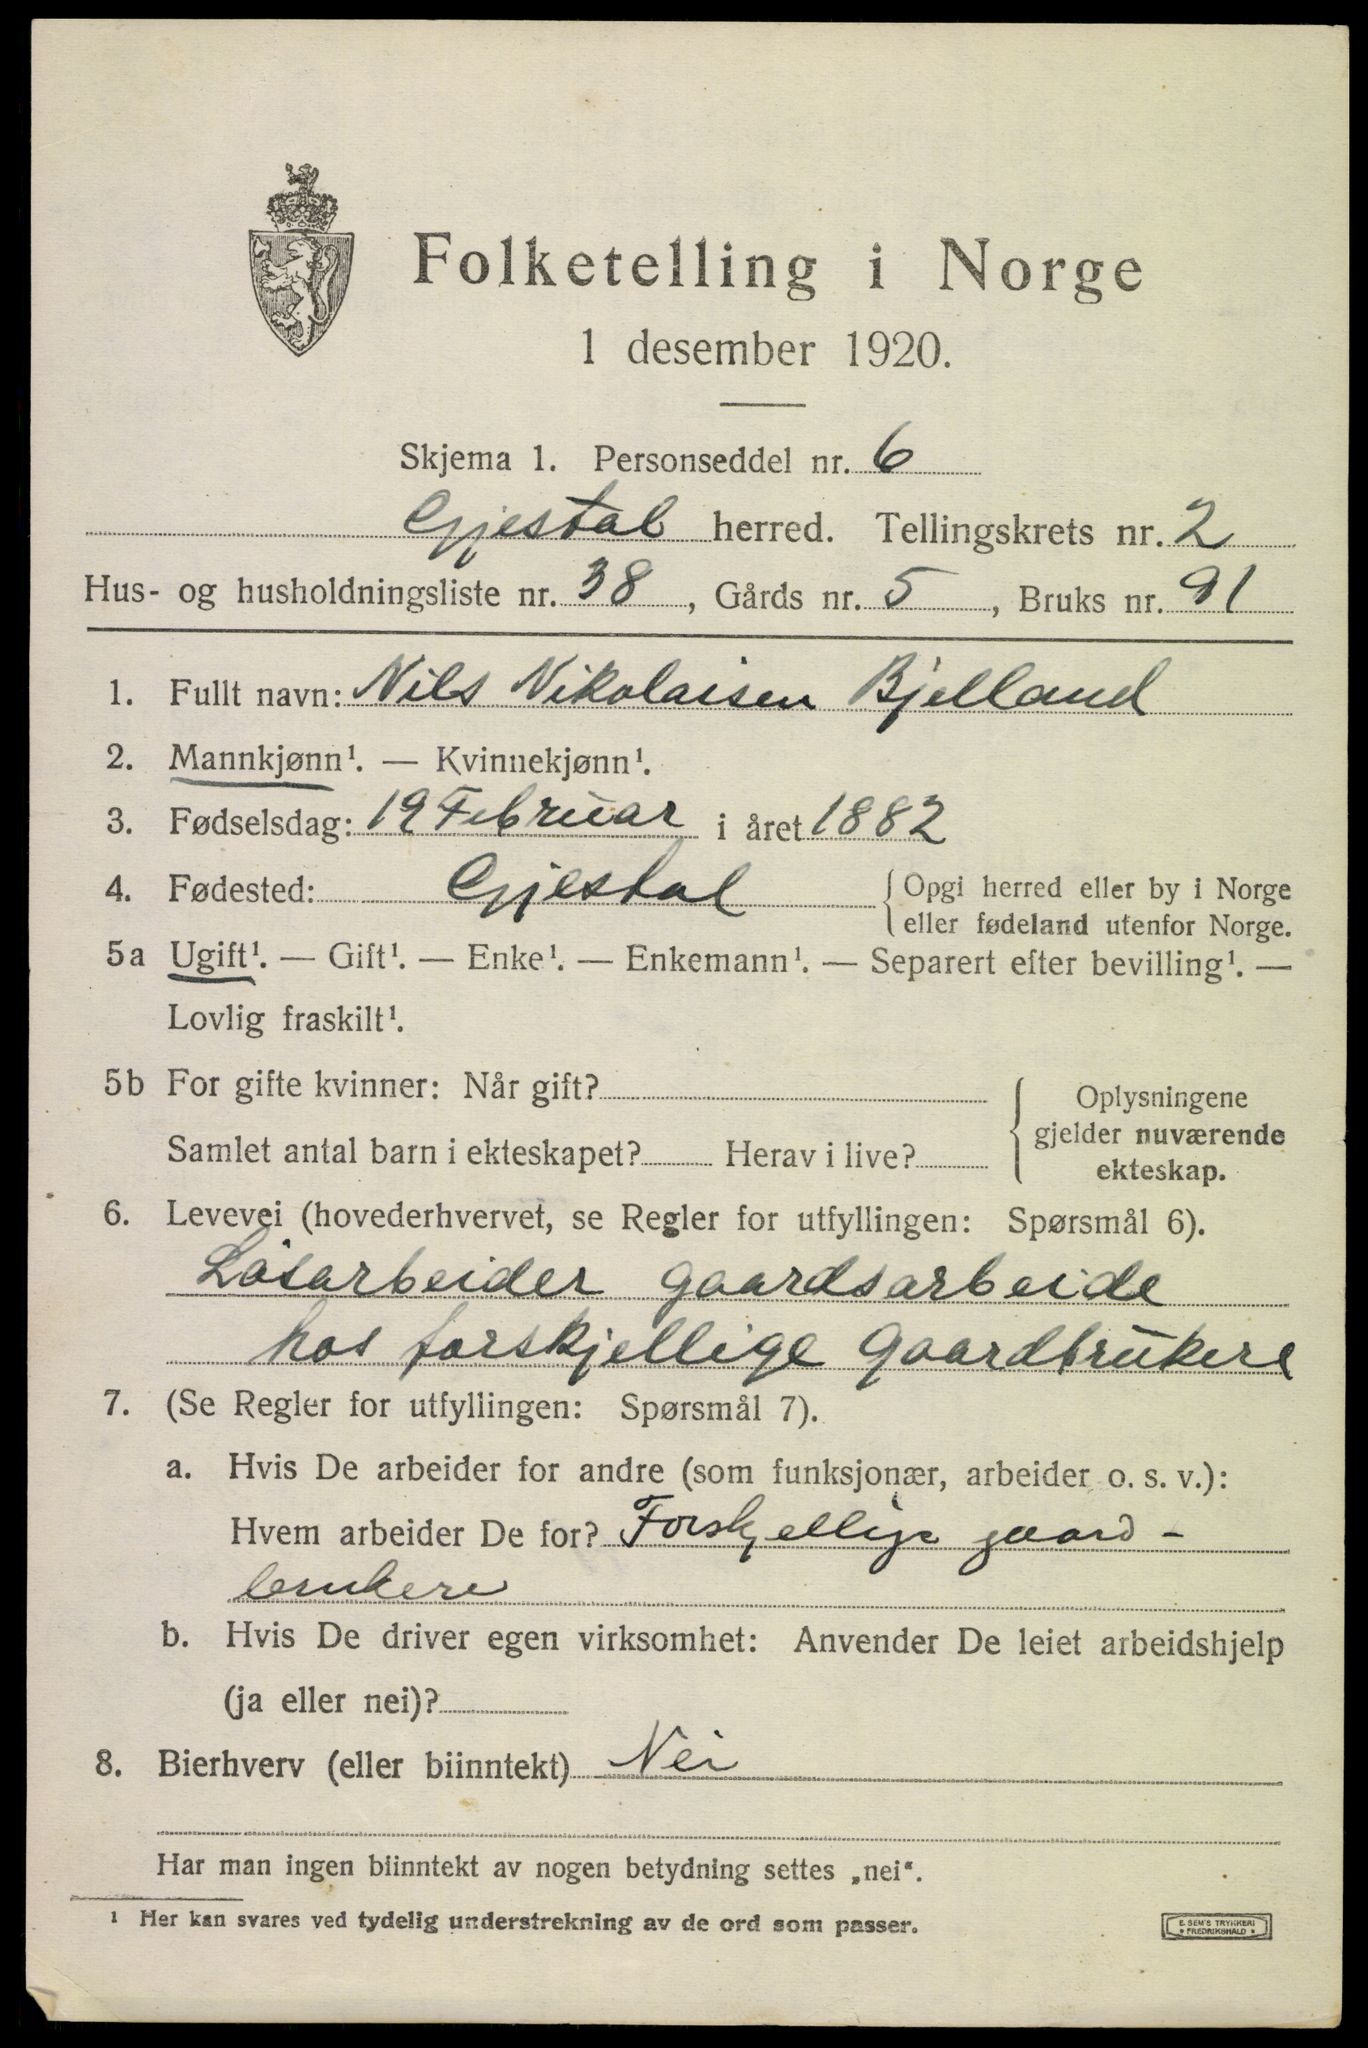 Folketelling i Norge
1 desember 1920.
Skjema 1. Personseddel nr. 6
Gjestal herred. Tellingskrets nr. 2
Hus- og husholdningsliste nr. 38, Gårds nr. 5, Bruks nr. 91
1. Fullt navn: Nils Nikolaisen Bjelland
2. Mannkjønn¹. — Kvinnekjønn¹.
3. Fødselsdag: 19 Februar i året 1882
4. Fødested: Gjestal {Opgi herred eller by i Norge
eller fødeland utenfor Norge.
5a Ugift¹. — Gift¹. — Enke¹. — Enkemann¹. — Separert efter bevilling¹. —
Lovlig fraskilt¹.
5b For gifte kvinner: Når gift?
Samlet antal barn i ekteskapet? Herav i live?
{Oplysningene
gjelder nuværende
ekteskap.
6. Levevei (hovederhvervet, se Regler for utfyllingen: Spørsmål 6).
Løsarbeider gaardsarbeide
hos forskjellige gaardbrukere
7. (Se Regler for utfyllingen: Spørsmål 7).
a. Hvis De arbeider for andre (som funksjonær, arbeider o. s. v.):
Hvem arbeider De for? Forskjellige gaard-
brukere
b. Hvis De driver egen virksomhet: Anvender De leiet arbeidshjelp
(ja eller nei)?
8. Bierhverv (eller biinntekt) Nei
Har man ingen biinntekt av nogen betydning settes „nei“.
¹ Her kan svares ved tydelig understrekning av de ord som passer.
E. SEM'S TRYKKERI
* FREDRIKSHALD *